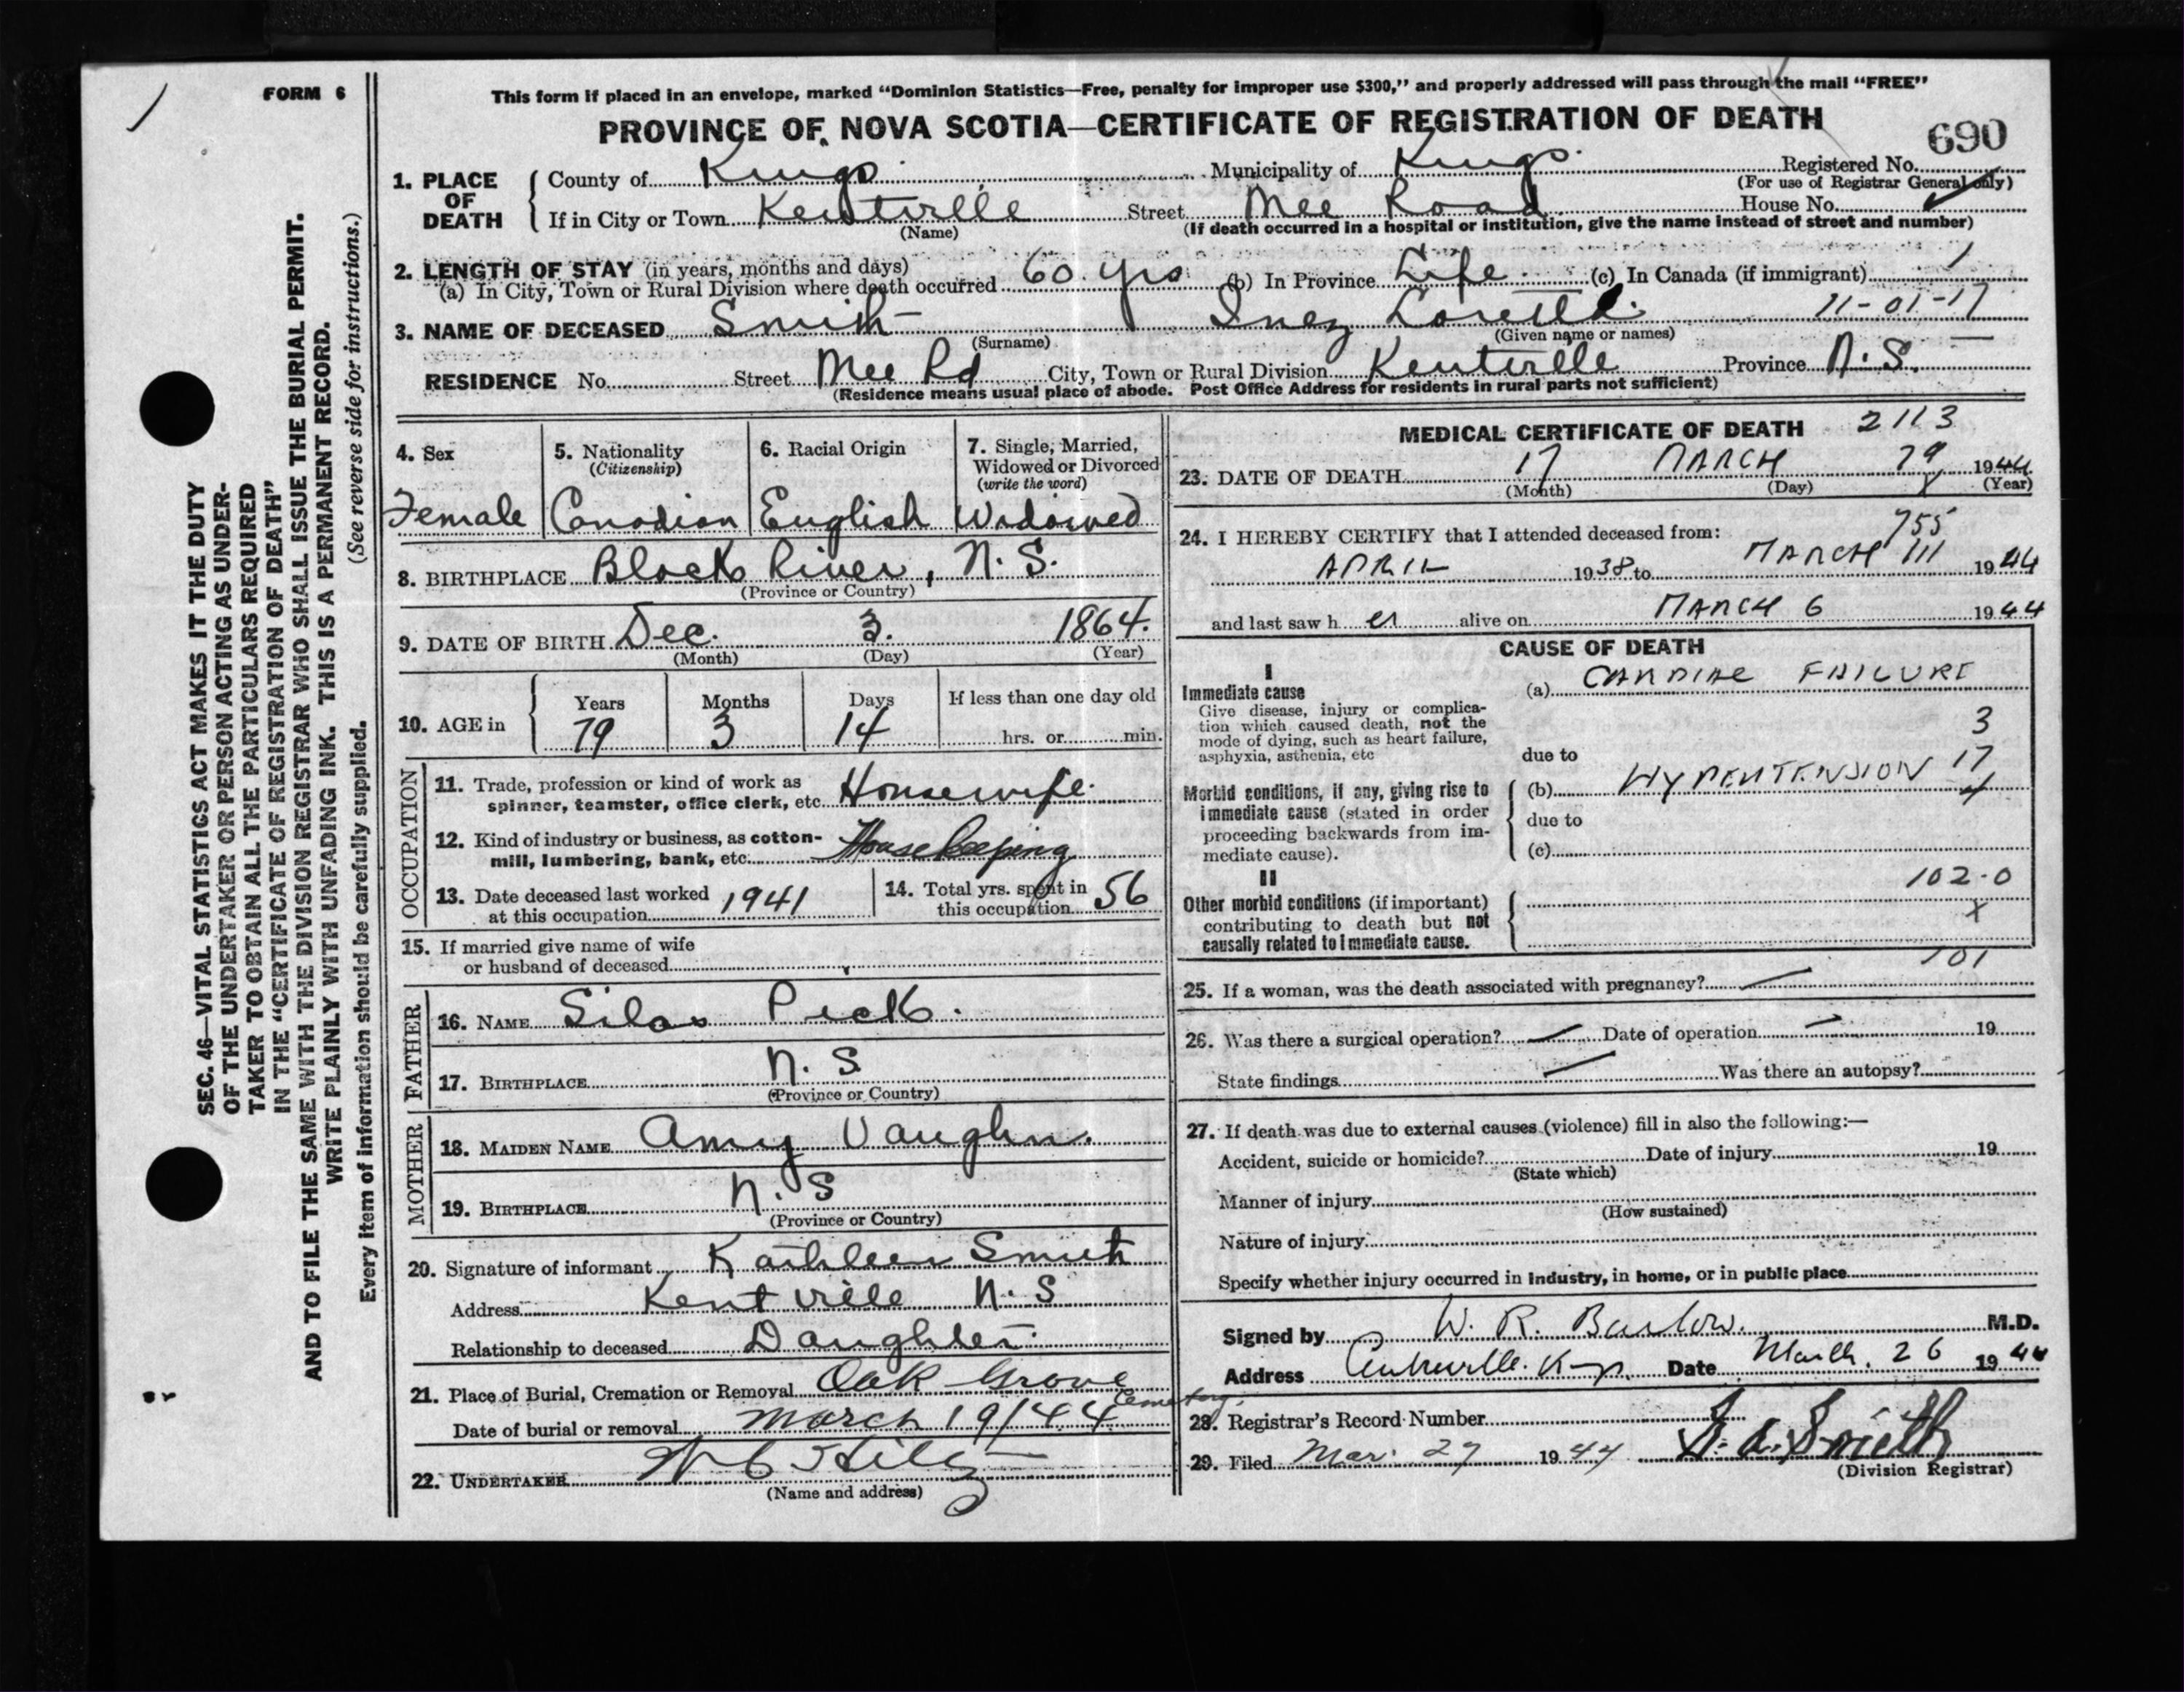 FORM 6
This form if placed in an envelope, marked "Dominion Statistics—Free, penalty for improper use $300," and properly addressed will pass through the mail "FREE"
PROVINCE OF NOVA SCOTIA—CERTIFICATE OF REGISTRATION OF DEATH
690
1. PLACE OF DEATH County of Kings Municipality of Kings Registered No.
(For use of Registrar General only)
If in City or Town Kentville Street Mee Road House No.
(Name) (If death occurred in a hospital or institution, give the name instead of street and number)
2. LENGTH OF STAY (in years, months and days)
(a) In City, Town or Rural Division where death occurred 60 yrs (b) In Province Life (c) In Canada (if immigrant)
11-01-17
3. NAME OF DECEASED Smith Inez Loretta
(Surname) (Given name or names)
RESIDENCE No. Street Mee Rd City, Town or Rural Division Kentville Province N.S.
(Residence means usual place of abode. Post Office Address for residents in rural parts not sufficient)
4. Sex 5. Nationality (Citizenship) 6. Racial Origin 7. Single, Married, Widowed or Divorced (write the word)
Female Canadian English Widowed
8. BIRTHPLACE Black River, N.S.
(Province or Country)
9. DATE OF BIRTH Dec. 3. 1864.
(Month) (Day) (Year)
10. AGE in Years Months Days If less than one day old
79 3 14 hrs. or min.
OCCUPATION
11. Trade, profession or kind of work as
spinner, teamster, office clerk, etc. Housewife.
12. Kind of industry or business, as cotton-
mill, lumbering, bank, etc. Housekeeping
13. Date deceased last worked at this occupation 1941 14. Total yrs. spent in this occupation 56
15. If married give name of wife
or husband of deceased
FATHER
16. NAME Silas Peck.
17. BIRTHPLACE N.S
(Province or Country)
MOTHER
18. MAIDEN NAME Amy Vaughn.
19. BIRTHPLACE N.S
(Province or Country)
20. Signature of informant Kathleen Smith
Address Kentville N.S
Relationship to deceased Daughter.
21. Place of Burial, Cremation or Removal Oak Grove Cemetery.
Date of burial or removal March 19/44
22. UNDERTAKER
(Name and address)
MEDICAL CERTIFICATE OF DEATH 2113
23. DATE OF DEATH 17 MARCH 79 1944
(Month) (Day) (Year)
24. I HEREBY CERTIFY that I attended deceased from: 755
APRIL 1938 to MARCH 1944
and last saw h er alive on MARCH 6 1944
CAUSE OF DEATH
I
Immediate cause (a) CARDIAC FAILURE
Give disease, injury or complica-
tion which caused death, not the
mode of dying, such as heart failure,
asphyxia, asthenia, etc due to
3
17
Morbid conditions, if any, giving rise to (b) HYPERTENSION
immediate cause (stated in order due to
proceeding backwards from im-
mediate cause). (c)
II
102-0
Other morbid conditions (if important) X
contributing to death but not
causally related to immediate cause.
101
25. If a woman, was the death associated with pregnancy?
26. Was there a surgical operation? Date of operation 19
State findings Was there an autopsy?
27. If death was due to external causes (violence) fill in also the following:—
Accident, suicide or homicide? Date of injury 19
(State which)
Manner of injury
(How sustained)
Nature of injury
Specify whether injury occurred in industry, in home, or in public place
Signed by W. R. Barlow. M.D.
Address Date March. 26 1944
28. Registrar's Record Number
29. Filed Mar. 27 1944 Smith
(Division Registrar)
SEC. 46—VITAL STATISTICS ACT MAKES IT THE DUTY
OF THE UNDERTAKER OR PERSON ACTING AS UNDER-
TAKER TO OBTAIN ALL THE PARTICULARS REQUIRED
IN THE "CERTIFICATE OF REGISTRATION OF DEATH"
AND TO FILE THE SAME WITH THE DIVISION REGISTRAR WHO SHALL ISSUE THE BURIAL PERMIT.
WRITE PLAINLY WITH UNFADING INK. THIS IS A PERMANENT RECORD.
Every item of information should be carefully supplied. (See reverse side for instructions.)